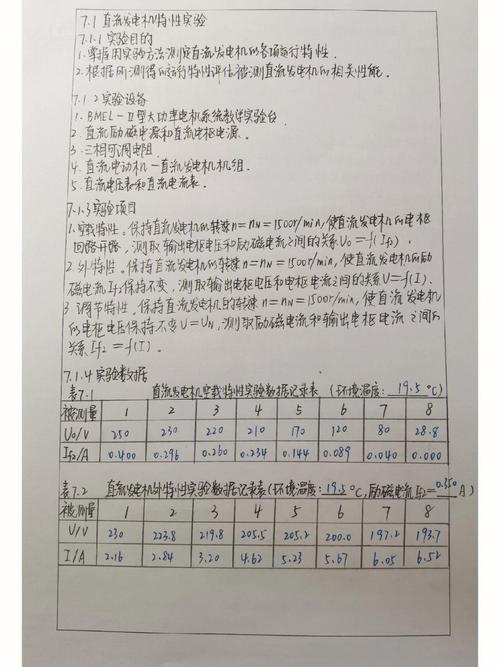 7.1 直流发电机特性实验
7.1.1 实验目的
1.掌握用实验方法测定直流发电机的各项运行特性.
2.根据所测得的运行特性评估被测直流发电机的相关性能.
7.1.2 实验设备
1. BMEL-Ⅱ型大功率电机系统教学实验台.
2.直流励磁电源和直流电枢电源.
3.三相可调电阻.
4.直流电动机-直流发电机机组.
5.直流电压表和直流电流表.
7.1.3 实验项目
1.空载特性。保持直流发电机的转速n=nN=1500r/min,使直流发电机的电枢
回路开路,测取输出电枢电压和励磁电流之间的关系U0=f(If2).
2.外特性。保持直流发电机的转速n=nN=1500r/min,使直流发电机的励
磁电流If2保持不变,测取输出电枢电压和电枢电流之间的关系U=f(I).
3.调节特性。保持直流发电机的转速n=nN=1500r/min,使直流发电机
的电枢电压保持不变U=UN,测取励磁电流和输出电枢电流之间的
关系If2=f(I).
7.1.4 实验数据
表7.1 直流发电机空载特性实验数据记录表 (环境温度:19.5℃)
被测量 1 2 3 4 5 6 7 8
U0/V 250 230 220 210 170 120 80 28.8
If2/A 0.400 0.296 0.260 0.234 0.144 0.089 0.040 0.000
表7.2 直流发电机外特性实验数据记录表(环境温度:19.5℃,励磁电流If2=0.350A)
被测量 1 2 3 4 5 6 7 8
U/V 230 223.8 219.8 205.5 205.2 200.0 197.2 193.7
I/A 2.16 2.84 3.20 4.62 5.23 5.67 6.05 6.52